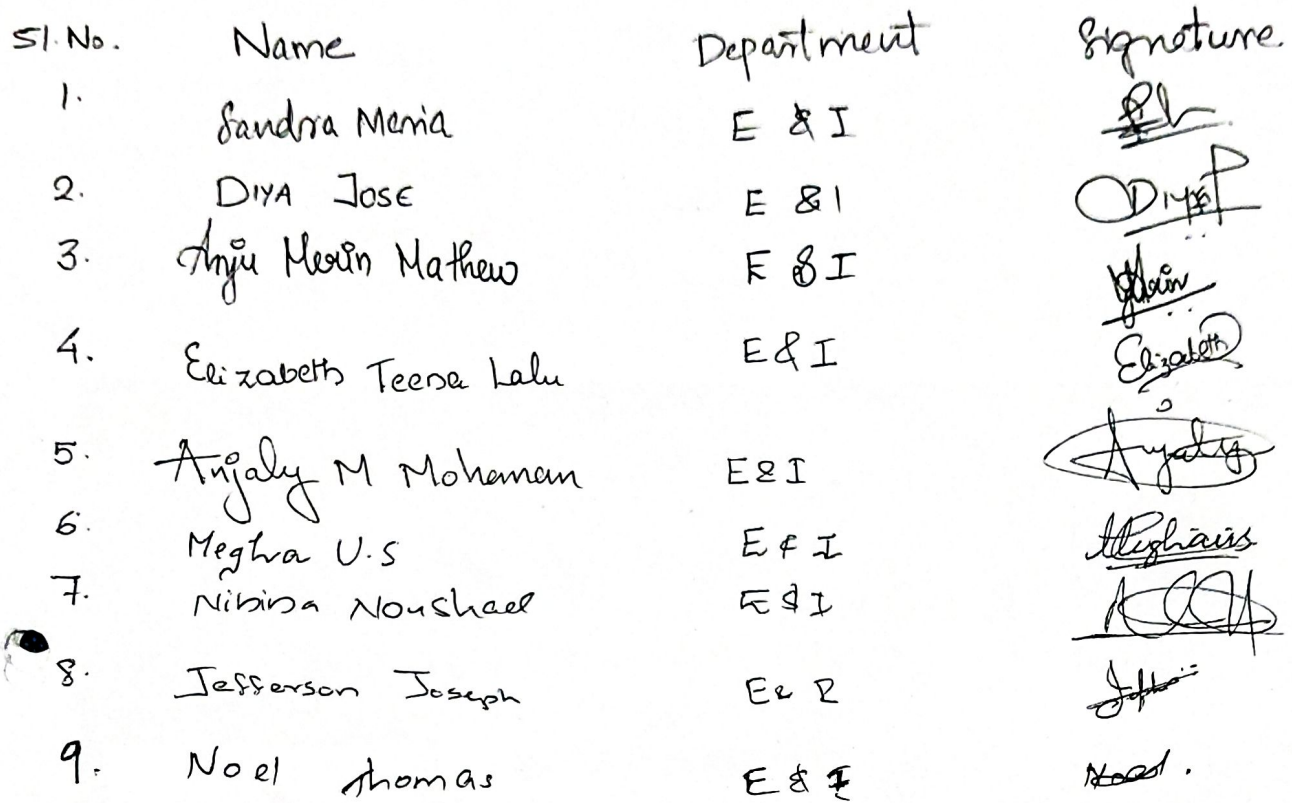 Sl. No. Name Department Signature
1. Sandra Maria E & I
2. DIYA JOSE E & I DIYA
3. Anju Merin Mathew E & I
4. Elizabeth Teresa Lalu E & I Elizabeth
5. Anjaly M Mohanan E & I Anjaly
6. Megha U.S E & I Megha U S
7. Noushad E & I
8. Jefferson Joseph E & R
9. Noel Thomas E & I Noel.